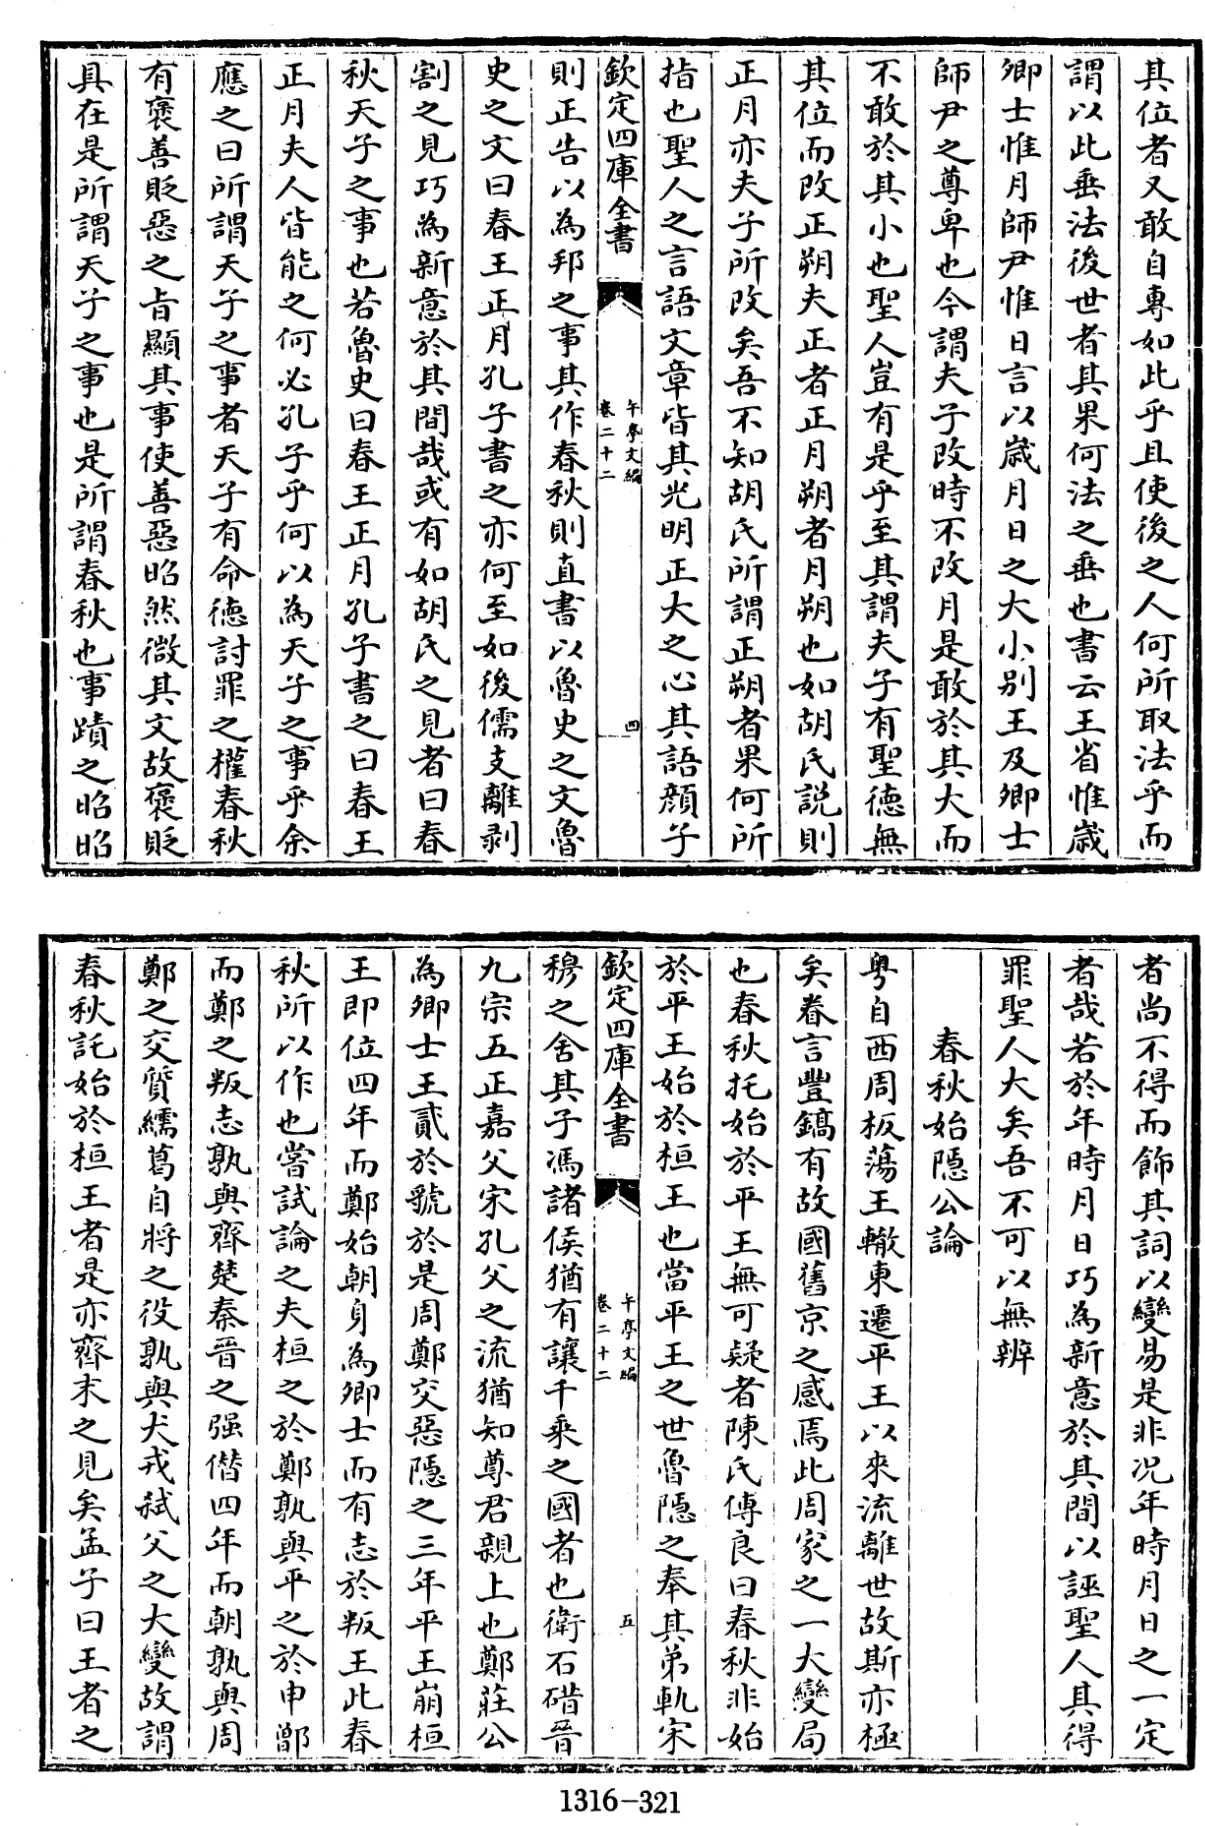 其位者又敢自專如此乎且使後之人何所取法乎而
謂以此垂法後世者其果何法之垂也書云王省惟歲
卿士惟月師尹惟日言以歲月日之大小別王及卿士
師尹之尊卑也今謂夫子改時不改月是敢於其大而
不敢於其小也聖人豈有是乎至其謂夫子有聖德無
其位而改正朔夫正者正月朔者月朔也如胡氏說則
正月亦夫子所改矣吾不知胡氏所謂正朔者果何所
指也聖人之言語文章皆其光明正大之心其語顏子
欽定四庫全書
午亭文編
卷二十二
四
則正告以為邦之事其作春秋則直書以魯史之文魯
史之文曰春王正月孔子書之亦何至如後儒支離剥
割之見巧為新意於其間哉或有如胡氏之見者曰春
秋天子之事也若魯史曰春王正月孔子書之曰春王
正月夫人皆能之何必孔子乎何以為天子之事乎余
應之曰所謂天子之事者天子有命德討罪之權春秋
有褒善貶惡之旨顯其事使善惡昭然微其文故褒貶
具在是所謂天子之事也是所謂春秋也事蹟之昭昭
者尚不得而飾其詞以變易是非况年時月日之一定
者哉若於年時月日巧為新意於其間以誣聖人其得
罪聖人大矣吾不可以無辨
春秋始隱公論
粤自西周板蕩王轍東遷平王以來流離世故斯亦極
矣眷言豐鎬有故國舊京之感焉此周家之一大變局
也春秋托始於平王無可疑者陳氏傅良曰春秋非始
於平王始於桓王也當平王之世魯隱之奉其弟軌宋
欽定四庫全書
午亭文編
卷二十二
五
穆之舍其子馮諸侯猶有讓千乘之國者也衛石碏晉
九宗五正嘉父宋孔父之流猶知尊君親上也鄭莊公
為卿士王貳於虢於是周鄭交惡隱之三年平王崩桓
王即位四年而鄭始朝身為卿士而有志於叛王此春
秋所以作也嘗試論之夫桓之於鄭孰與平之於申鄫
而鄭之叛志孰與齊楚秦晉之强僭四年而朝孰與周
鄭之交質繻葛自將之役孰與犬戎弑父之大變故謂
春秋託始於桓王者是亦齊末之見矣孟子曰王者之
1316-321